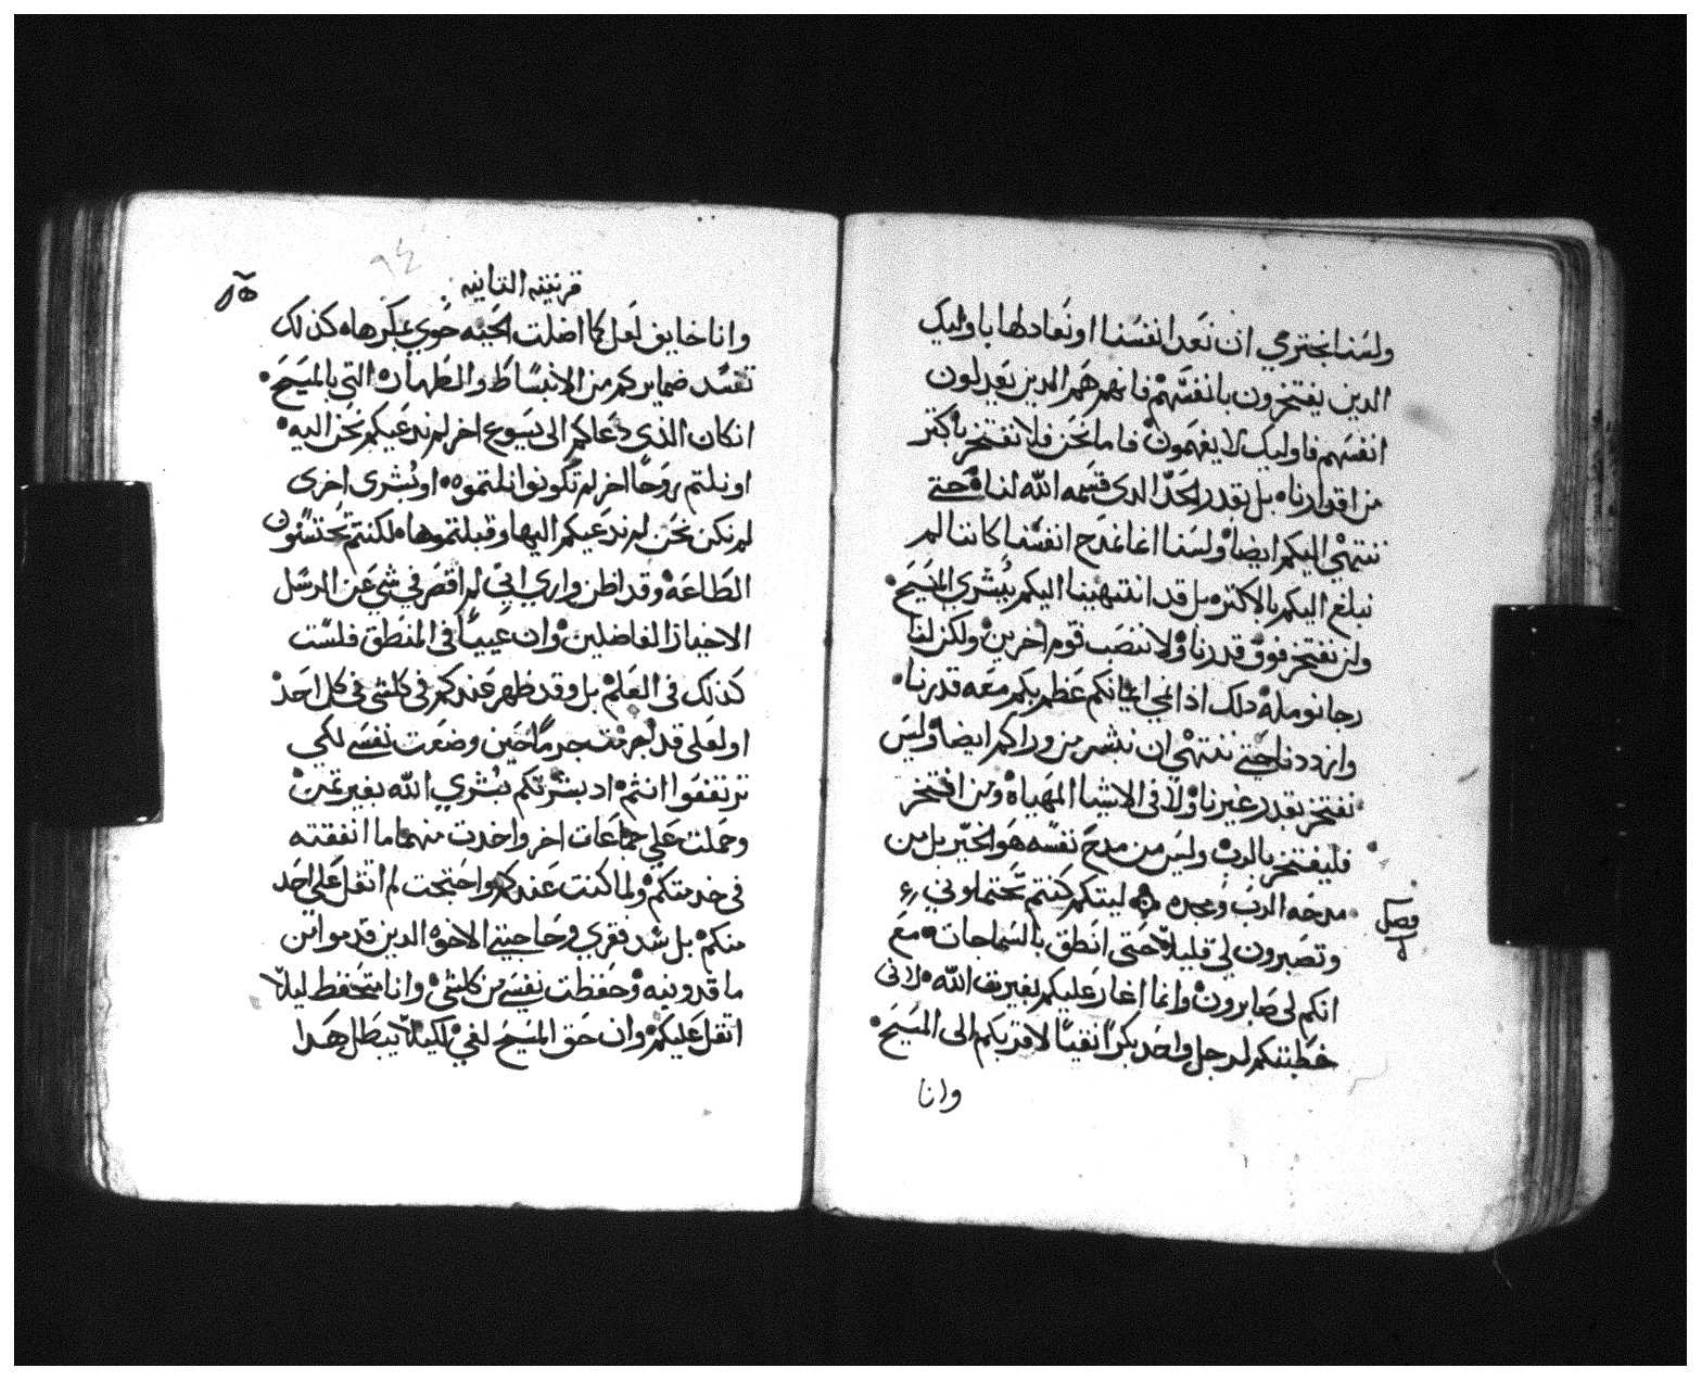 ولسنا نجتري ان نعد انفسنا او نعادلها باوليك
الدين يفتخرون بانفسهم فانهم هم الدين يعدلون
انفسهم فاوليك لا يفهمون فاما نحن فلا نفتخر باكتر
من اقدارنا بل بقدر الحد الدي قسمه الله لنا حتي
ننتهي اليكم ايضا ولسنا انما نمدح انفسنا كاننا لم
نبلغ اليكم بالاكثره بل قد انتهينا اليكم ببشري المسيح
ولن نفتخر فوق قدرنا ولا بنصب قوم اخرين ولكن لنا
رجا نومله دلك ادا نمي ايمانكم عظم بكم معه قدرنا
وازددنا حتي ننتهي ان نبشر من وراكم ايضا وليس
نفتخر بقدر غيرنا ولا في الاشيا المهياه ومن افتخر
فليفتخر بالرب وليس من مدح نفسه هو الخير بل من
مدحه الرب ومجده ليتكم كنتم تحتملوني
فصل
وتصبرون لي قليلا حتي انطق بالسماجات مع
انكم لي صابرون وانما اغار عليكم بغيرت الله لاني
خطبتكم لرجل واحد بكرا نقيا لاقربكم الى المسيح
وانا
٩٤
قرنتيه التانيه
وانا خايف لعل كما اضلت الحيه حوي بمكرها كذلك
تفسد ضمايركم من الانبساط والطهاره التي بالمسيح
انكان الذي دعاكم الى يسوع اخر لم ندعيكم نحن اليه
او نلتم روحا اخر لم تكونوا نلتموه او بشرى اخرى
لم نكن نحن لم ندعيكم اليها وقبلتموها لكنتم تحتسنون
الطاعه وقد اظن واري اني لم اقصر في شي عن الرسل
الاخيار الفاضلين وان عييا في المنطق فلست
كذلك في العلم بل وقد ظهر عندكم في كلشي في كل احد
او لعلى قد اجرمت جرما حين وضعت نفسي لكي
ترتفعوا انتم اد بشرتكم ببشري الله بغير تمن
وحملت علي جماعات اخر واخدت منهم ما انفقته
في خدمتكم ولما كنت عندكم واحتجت لم اتقل علي احد
منكم بل سد فقري وحاجتي الاخوه الدين قدموا من
ماقدونيه وحفظت نفسي من كلشي وانا متحفظ ليلا
اتقل عليكم وان حق المسيح لفي لكيلا يبطل هدا